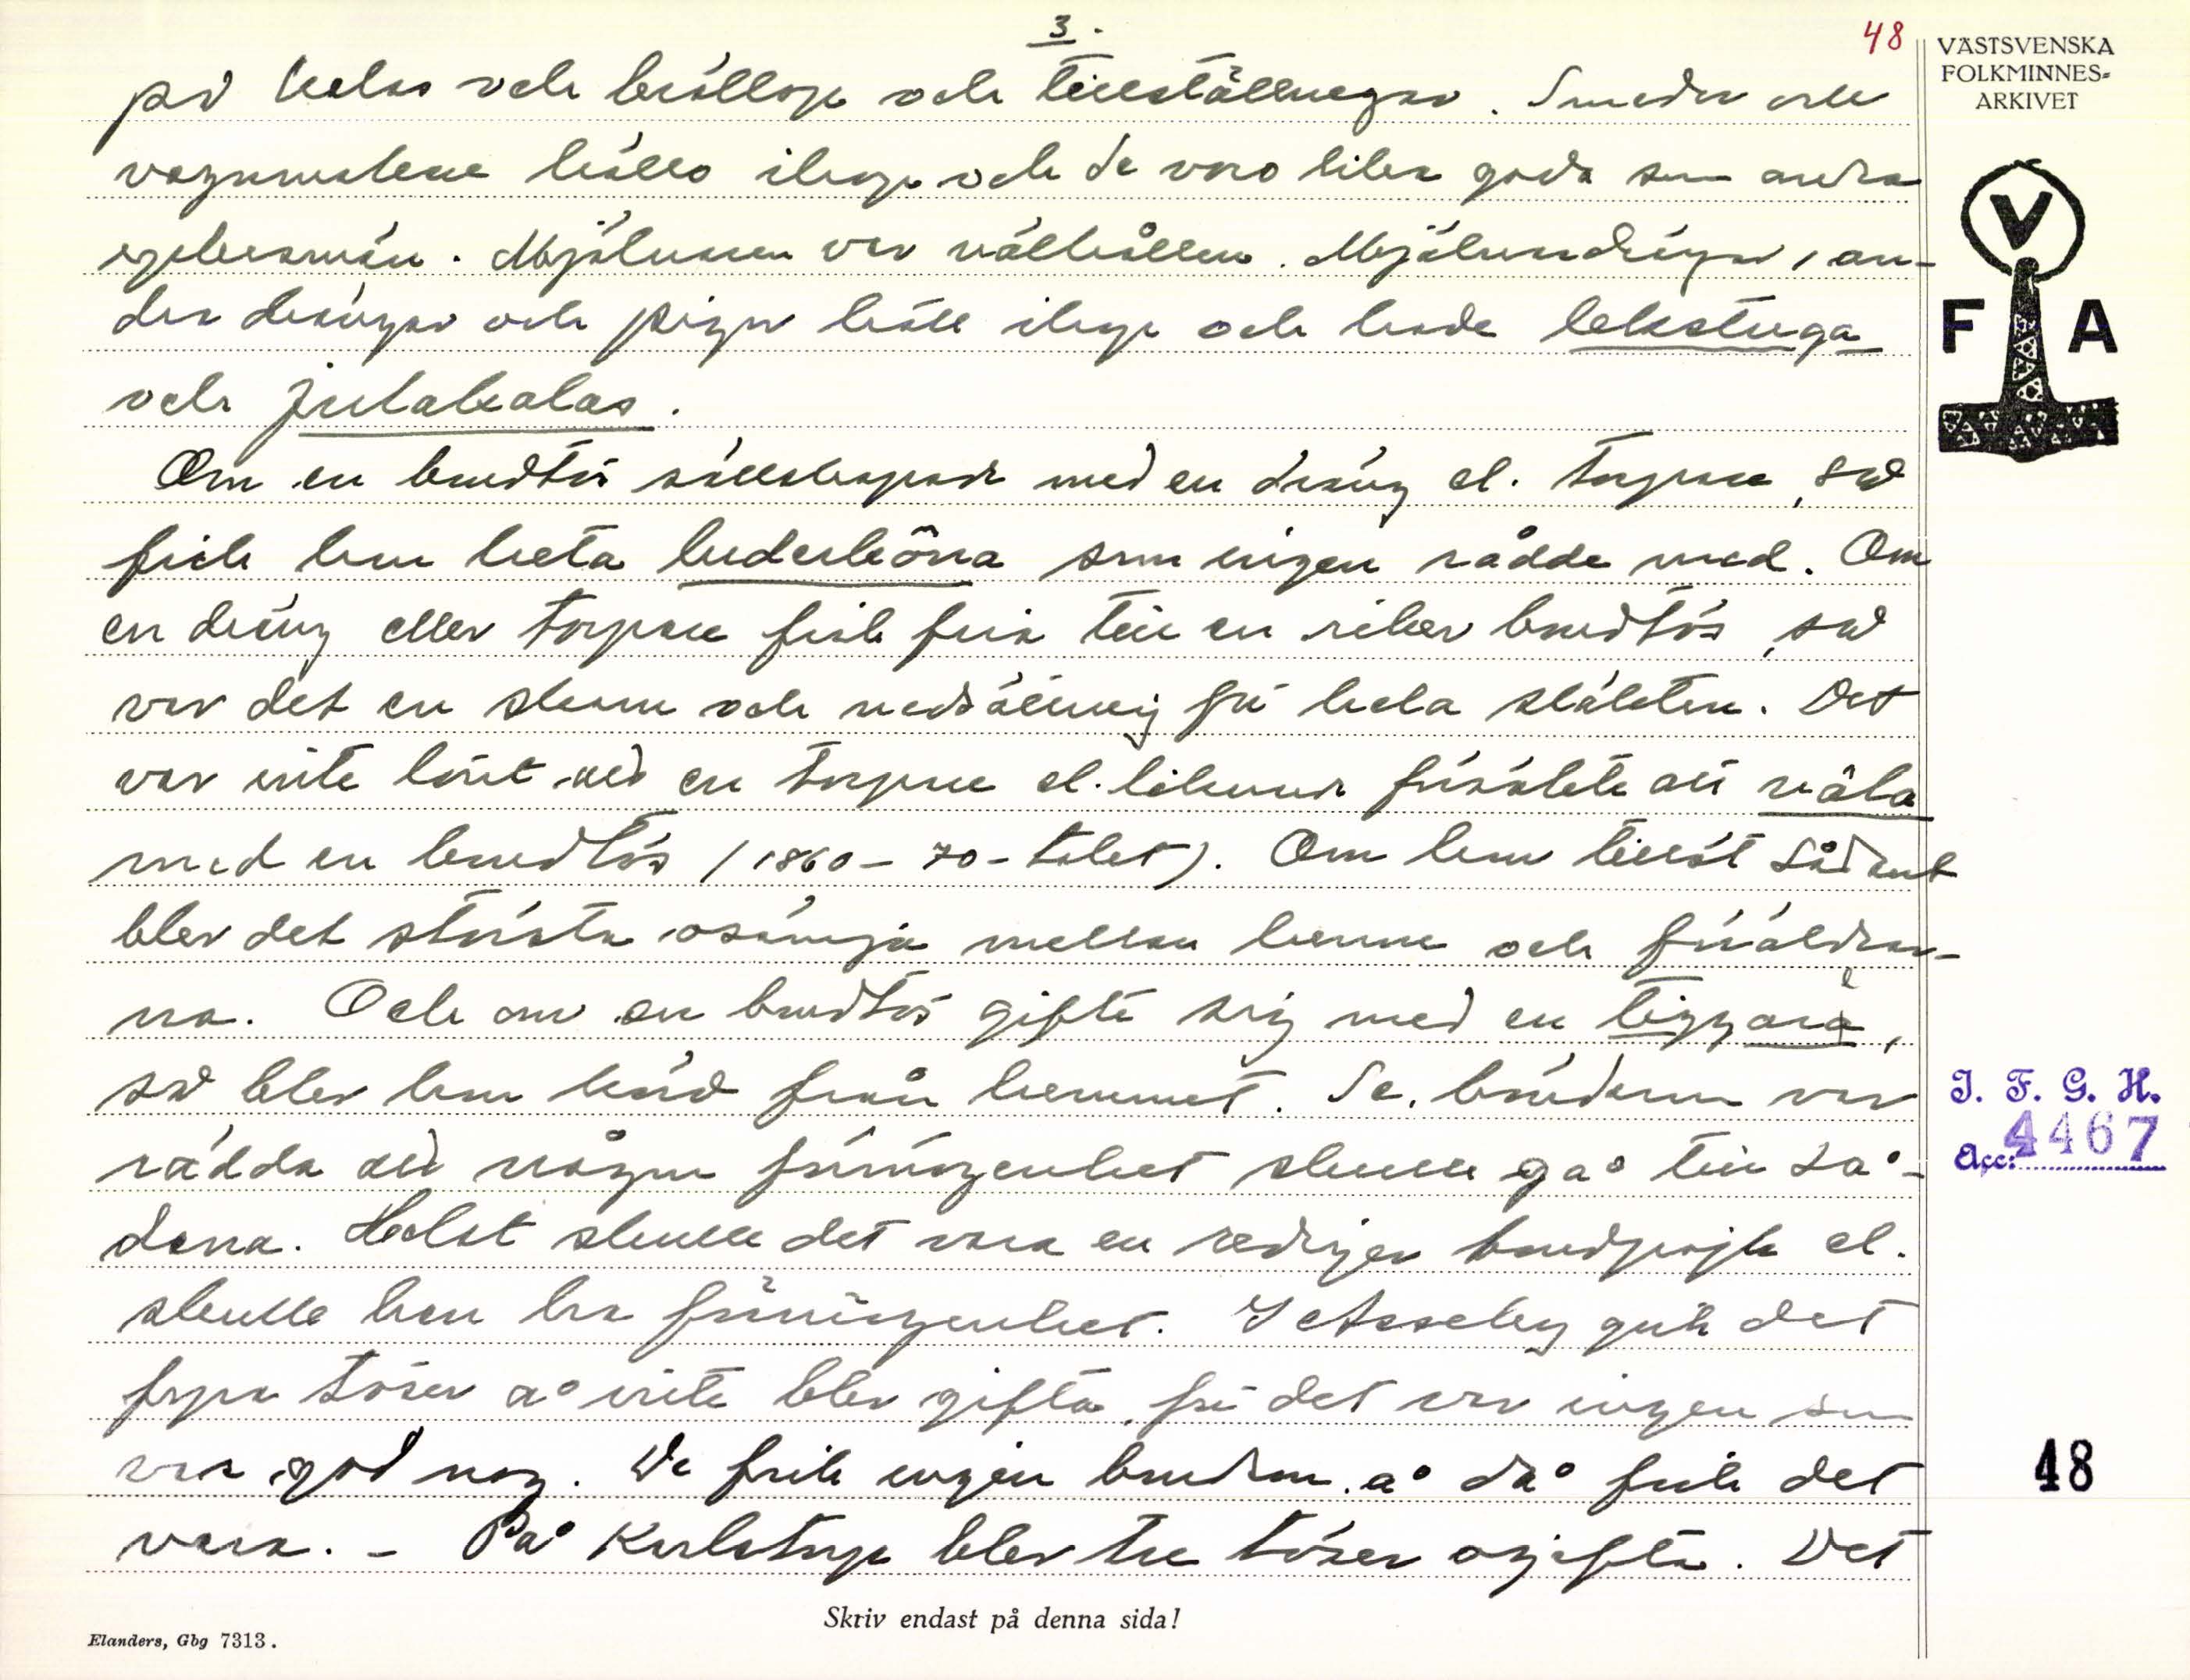 3.
48
på kalas och bröllop och tillställningar. Smeder och
vagnmakare höllo ihop och de voro lika goda som andra
yrkesmän. Mjölnaren var välhållen. Mjölnardrängar, an-
dra drängar och pigor höll ihop och hade lekstuga
och julakalas.
Om en bondtös sällskapade med en dräng el. torpare, så
fick hon heta luderhöna som ingen rådde med. Om
en dräng eller torpare fick fria till en riker bondtös, så
var det en skam och nedsättning för hela släkten. Det
var inte lönt att en torpare el. liknande försökte att näla
med en bondtös (1860-70-talet). Om hon tillät sådant
blev det största osämja mellan henne och föräldrar-
na. Och om en bondtös gifte sig med en tiggare,
så blev hon körd från hemmet. Se, bönderna var
rädda att någon förmögenhet skulle gå till så-
dana. Helst skulle det vara en rediger bondpojk el.
skulle han ha förmögenhet. I Asseby gick det
fyra töser å inte blev gifta, för det var ingen som
var god nog. De fick ingen bondson, å då fick det
vara. - På Karlstorp blev tre töser ogifta. Det
Skriv endast på denna sida!
Elanders, Gbg 7313.
VÄSTSVENSKA
FOLKMINNES-
ARKIVET
V
F A
I. F. G. H.
Acc: 4467
48